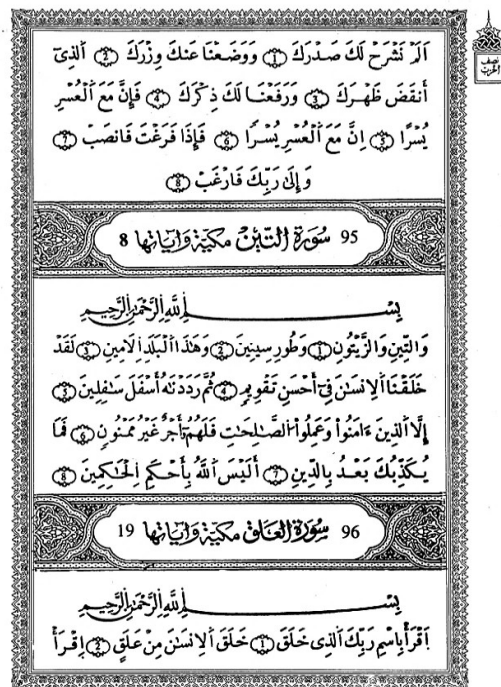 اَلَمْ نَشْرَحْ لَكَ صَدْرَكَ 1 وَوَضَعْنَا عَنكَ وِزْرَكَ 2 اَلذِےٓ
أَنقَضَ ظَهْرَكَ 3 وَرَفَعْنَا لَكَ ذِكْرَكَ 4 فَإِنَّ مَعَ اَلْعُسْرِ
يُسْرًا 5 اِنَّ مَعَ اَلْعُسْرِ يُسْرًا 6 فَإِذَا فَرَغْتَ فَانصَبْ 7
وَإِلَىٰ رَبِّكَ فَارْغَب 8
نصف
الحزب
95 سُورَة التِّين مكية وآياتها 8
بِسْمِ اِللَّهِ اِلرَّحْمَٰنِ اِلرَّحِيمِ
وَالتِّينِ وَالزَّيْتُونِ 1 وَطُورِ سِينِينَ 2 وَهَٰذَا اَلْبَلَدِ اِلَامِينِ 3 لَقَدْ
خَلَقْنَا اَلِانسَٰنَ فِےٓ أَحْسَنِ تَقْوِيمٍ 4 ثُمَّ رَدَدْنَٰهُ أَسْفَلَ سَٰفِلِينَ 5
إِلَّا اَلذِينَ ءَامَنُواْ وَعَمِلُواْ اُلصَّٰلِحَٰتِ فَلَهُمُۥٓ أَجْرٌ غَيْرُ مَمْنُونٍ 6 فَمَا
يُكَذِّبُكَ بَعْدُ بِالدِّينِ 7 أَلَيْسَ اَللَّهُ بِأَحْكَمِ اِلْحَٰكِمِينَ 8
96 سُورَة العَلَق مكية وآياتها 19
بِسْمِ اِللَّهِ اِلرَّحْمَٰنِ اِلرَّحِيمِ
اِقْرَأْ بِاسْمِ رَبِّكَ اَلذِى خَلَقَ 1 خَلَقَ اَلِانسَٰنَ مِنْ عَلَقٍ 2 اِقْرَأْ